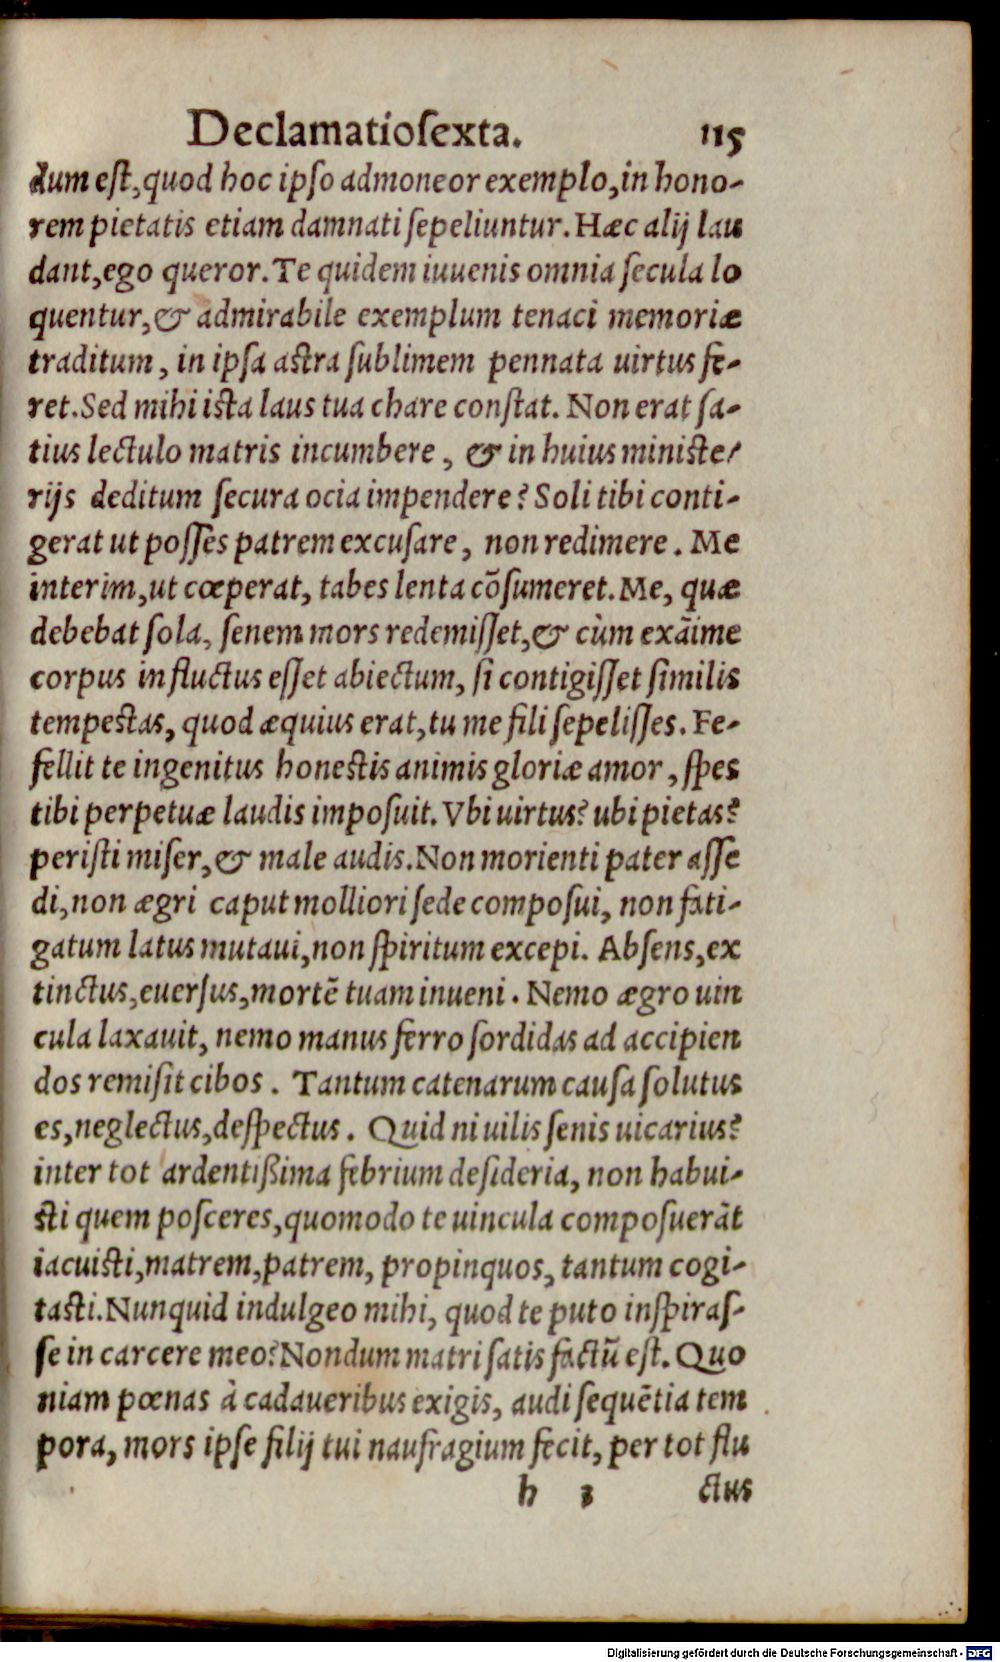 Declamatio sexta. 115
dum est, quod hoc ipso admoneor exemplo, in hono-
rem pietatis etiam damnati sepeliuntur. Hæc alij lau
dant, ego queror. Te quidem iuuenis omnia secula lo
quentur, & admirabile exemplum tenaci memoriæ
traditum, in ipsa astra sublimem pennata uirtus fe-
ret. Sed mihi ista laus tua chare constat. Non erat sa-
tius lectulo matris incumbere, & in huius ministe-
rijs deditum secura ocia impendere? Soli tibi conti-
gerat ut posses patrem excusare, non redimere. Me
interim, ut cœperat, tabes lenta cõsumeret. Me, quæ
debebat sola, senem mors redemisset, & cùm exãime
corpus in fluctus esset abiectum, si contigisset similis
tempestas, quod æquius erat, tu me fili sepelisses. Fe-
fellit te ingenitus honestis animis gloriæ amor, spes
tibi perpetuæ laudis imposuit. Vbi uirtus? ubi pietas?
peristi miser, & male audis. Non morienti pater asse
di, non ægri caput molliori sede composui, non fati-
gatum latus mutaui, non spiritum excepi. Absens, ex
tinctus, euersus, mortẽ tuam inueni. Nemo ægro uin
cula laxauit, nemo manus ferro sordidas ad accipien
dos remisit cibos. Tantum catenarum causa solutus
es, neglectus, despectus. Quid ni uilis senis uicarius?
inter tot ardentißima febrium desideria, non habui-
sti quem posceres, quomodo te uincula composuerãt
iacuisti, matrem, patrem, propinquos, tantum cogi-
tasti. Nunquid indulgeo mihi, quod te puto inspiras-
se in carcere meo? Nondum matri satis factũ est. Quo
niam pœnas à cadaueribus exigis, audi sequẽtia tem
pora, mors ipse filij tui naufragium fecit, per tot flu
h 3 ctus
Digitalisierung gefördert durch die Deutsche Forschungsgemeinschaft - DFG